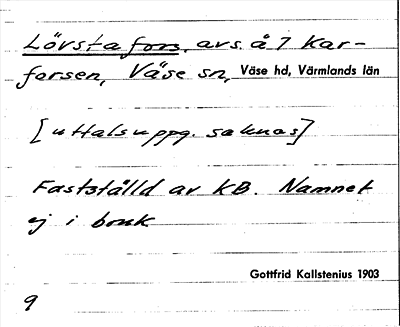 Lövstafors, avs. å 7 Kar-
forsen, Väse sn, Väse hd, Värmlands län
[uttalsuppg. saknas]
Fastställd av KB. Namnet
ej i bruk
Gottfrid Kallstenius 1903
9